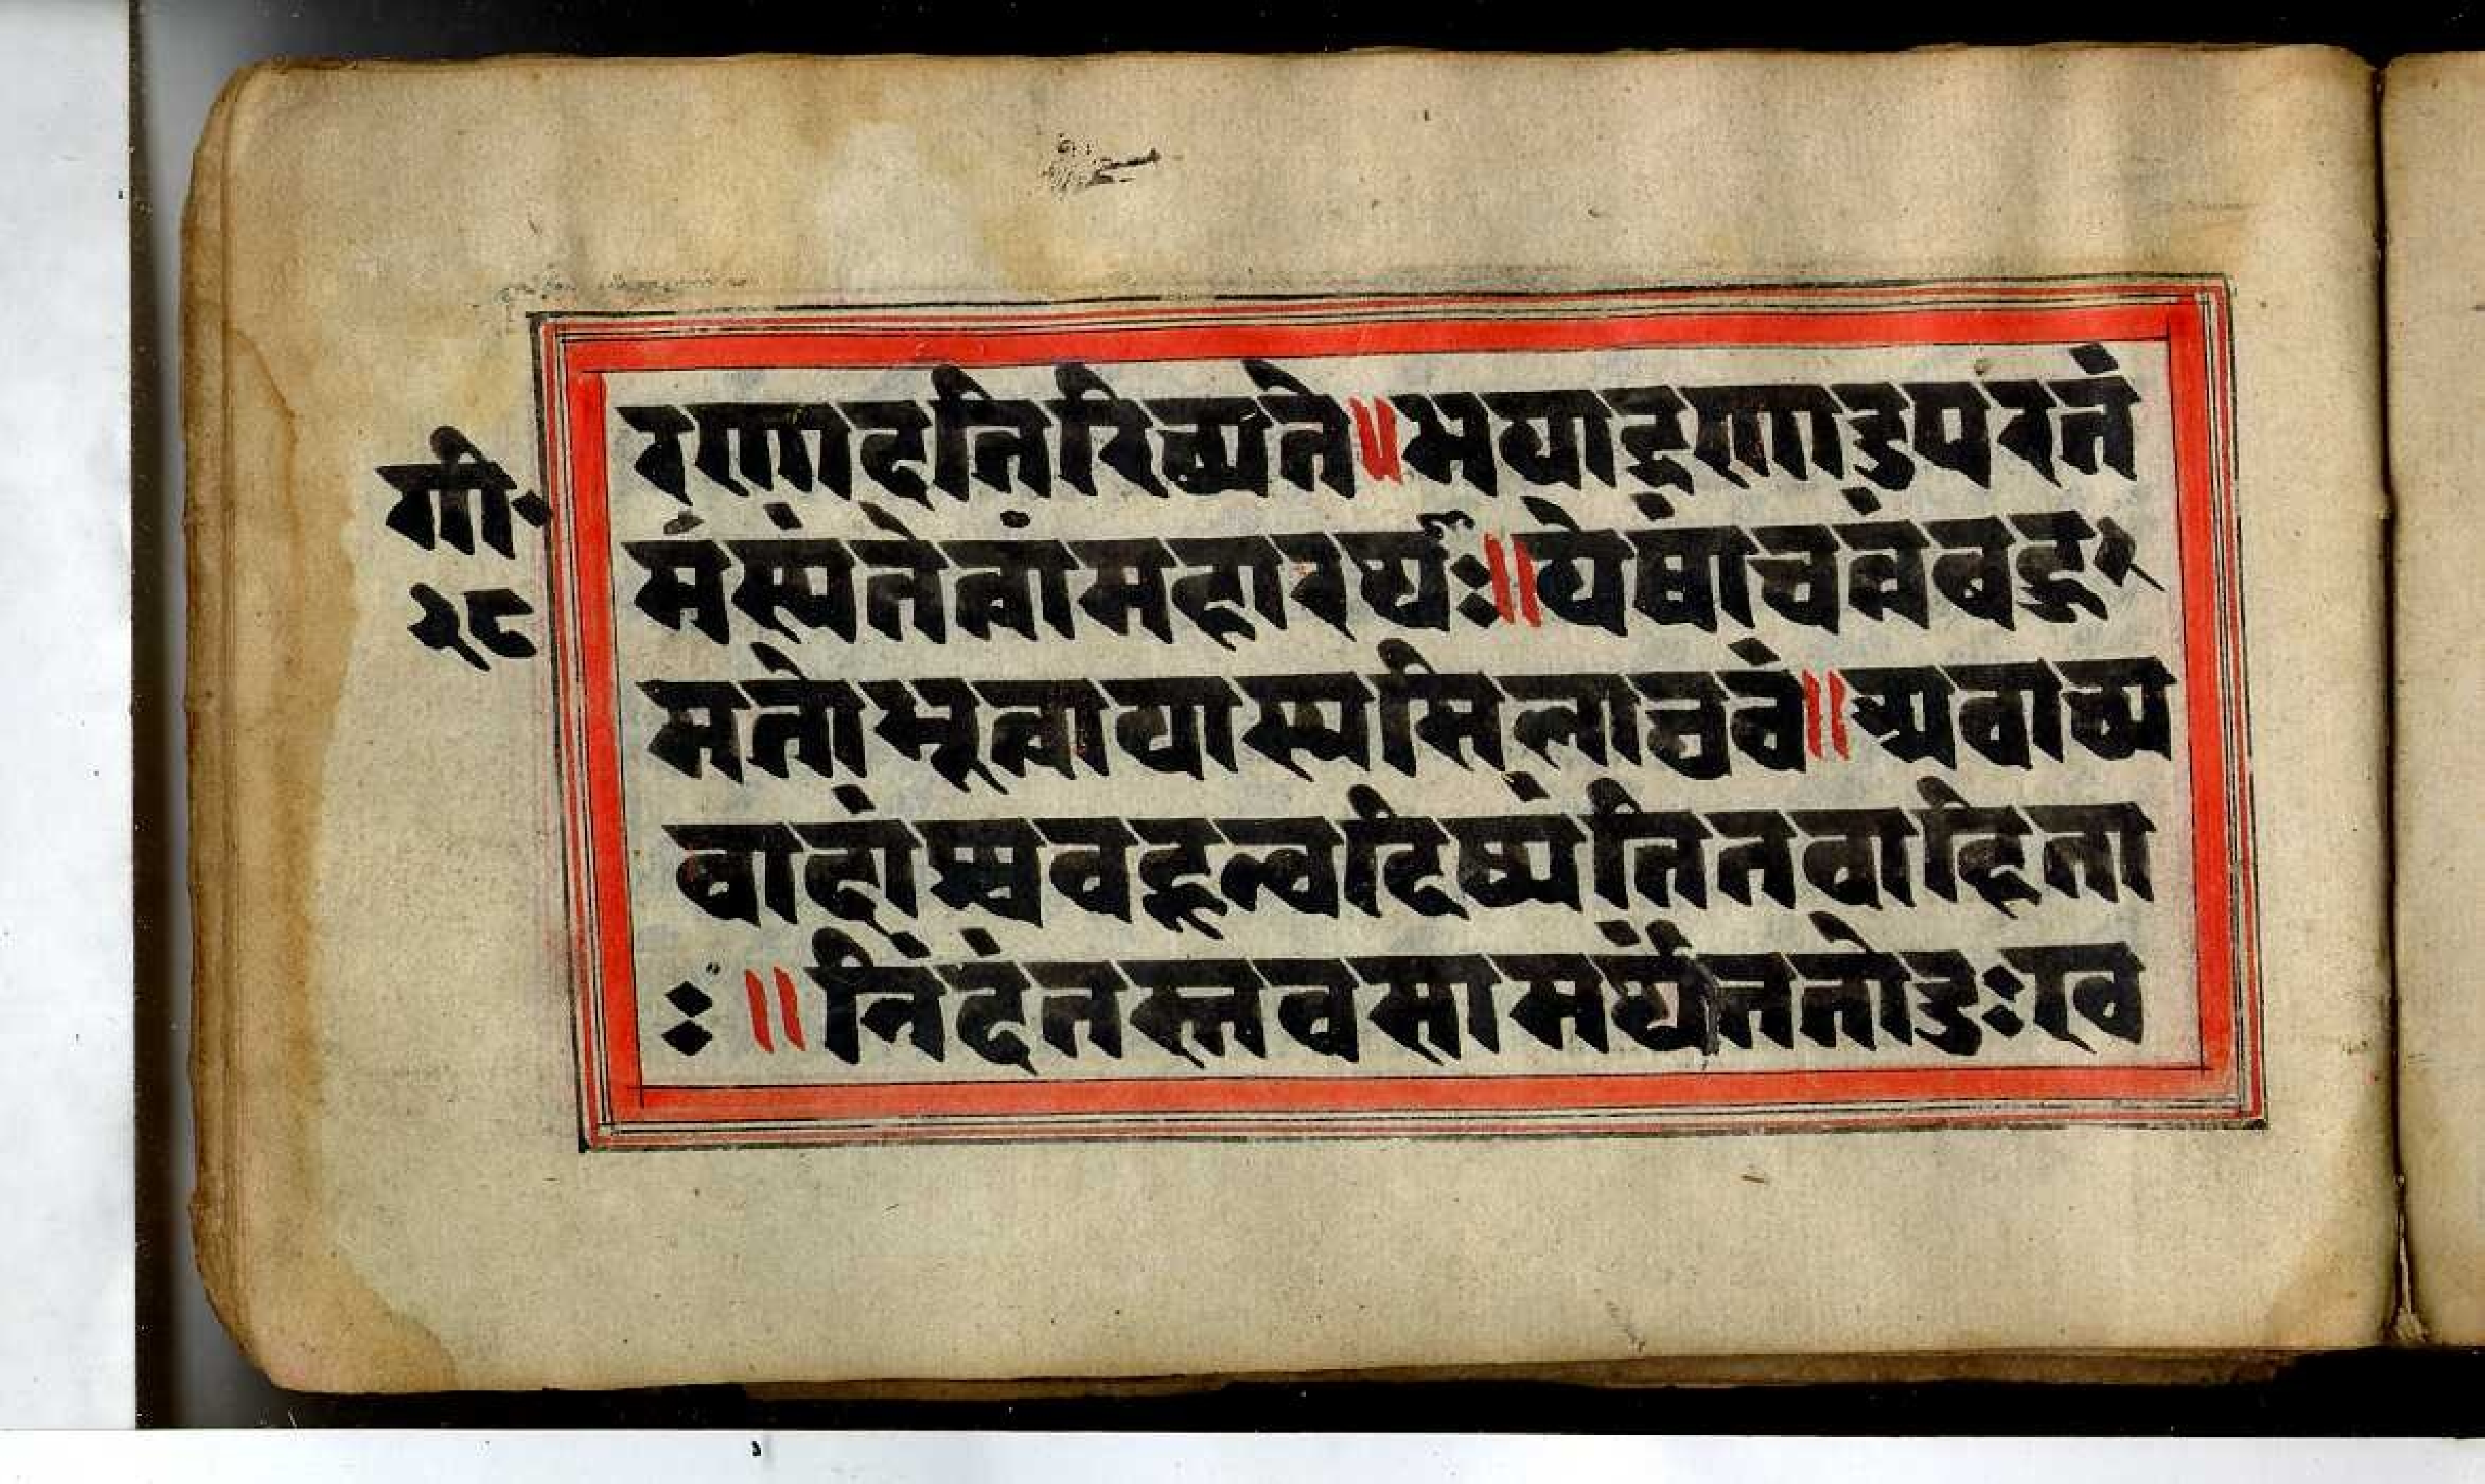 गी॰
२८
रणादतिरिच्यते॥भयाद्रणाडुपरतं
मंस्यंतेत्वांमहारथाः॥येषांचत्वंबहु
मतोभूत्वायास्यसिलाघवं॥अवाच्य
वादांश्चवहून्वदिष्यंतितवाहिता
ः॥निंदंतस्तवसामर्थ्यंततोडुःखत